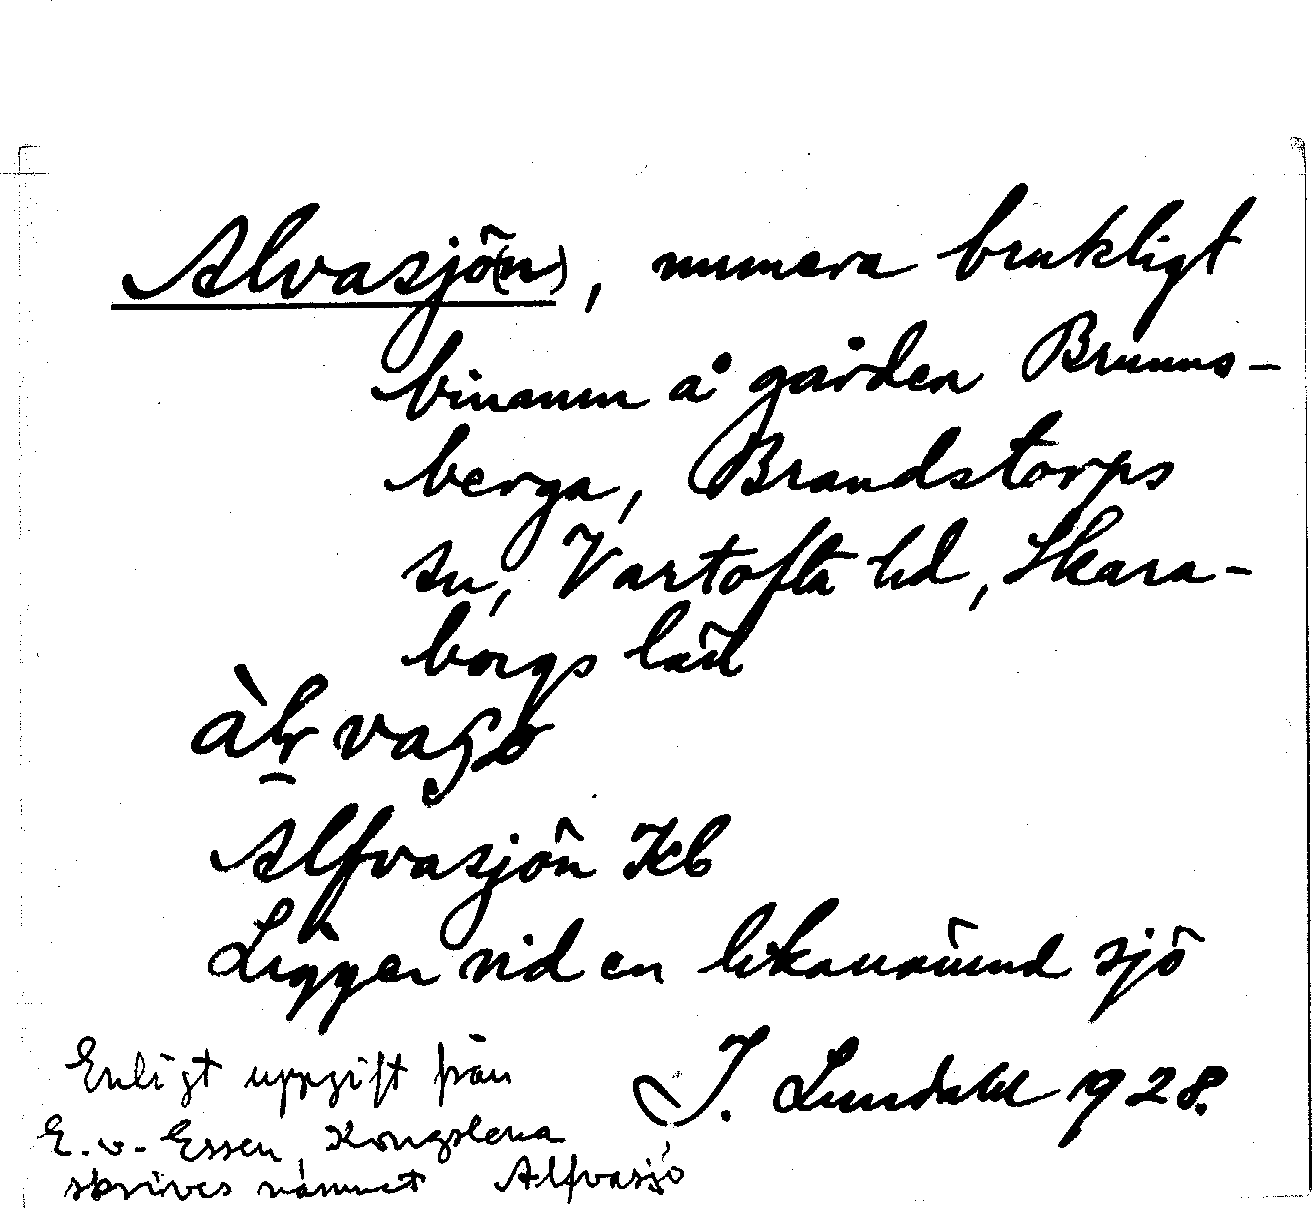 Alvasjö(n), numera brukligt
binamn å gården Brunns-
berga, Brandstorps
sn, Vartofta hd, Skara-
borgs län
Alfvasjön Kb
Ligger vid en likanämnd sjö
I. Lundahl 1928.
Enligt uppgift från
E. v. Essen, Kongslena
skrives namnet Alfvasjö